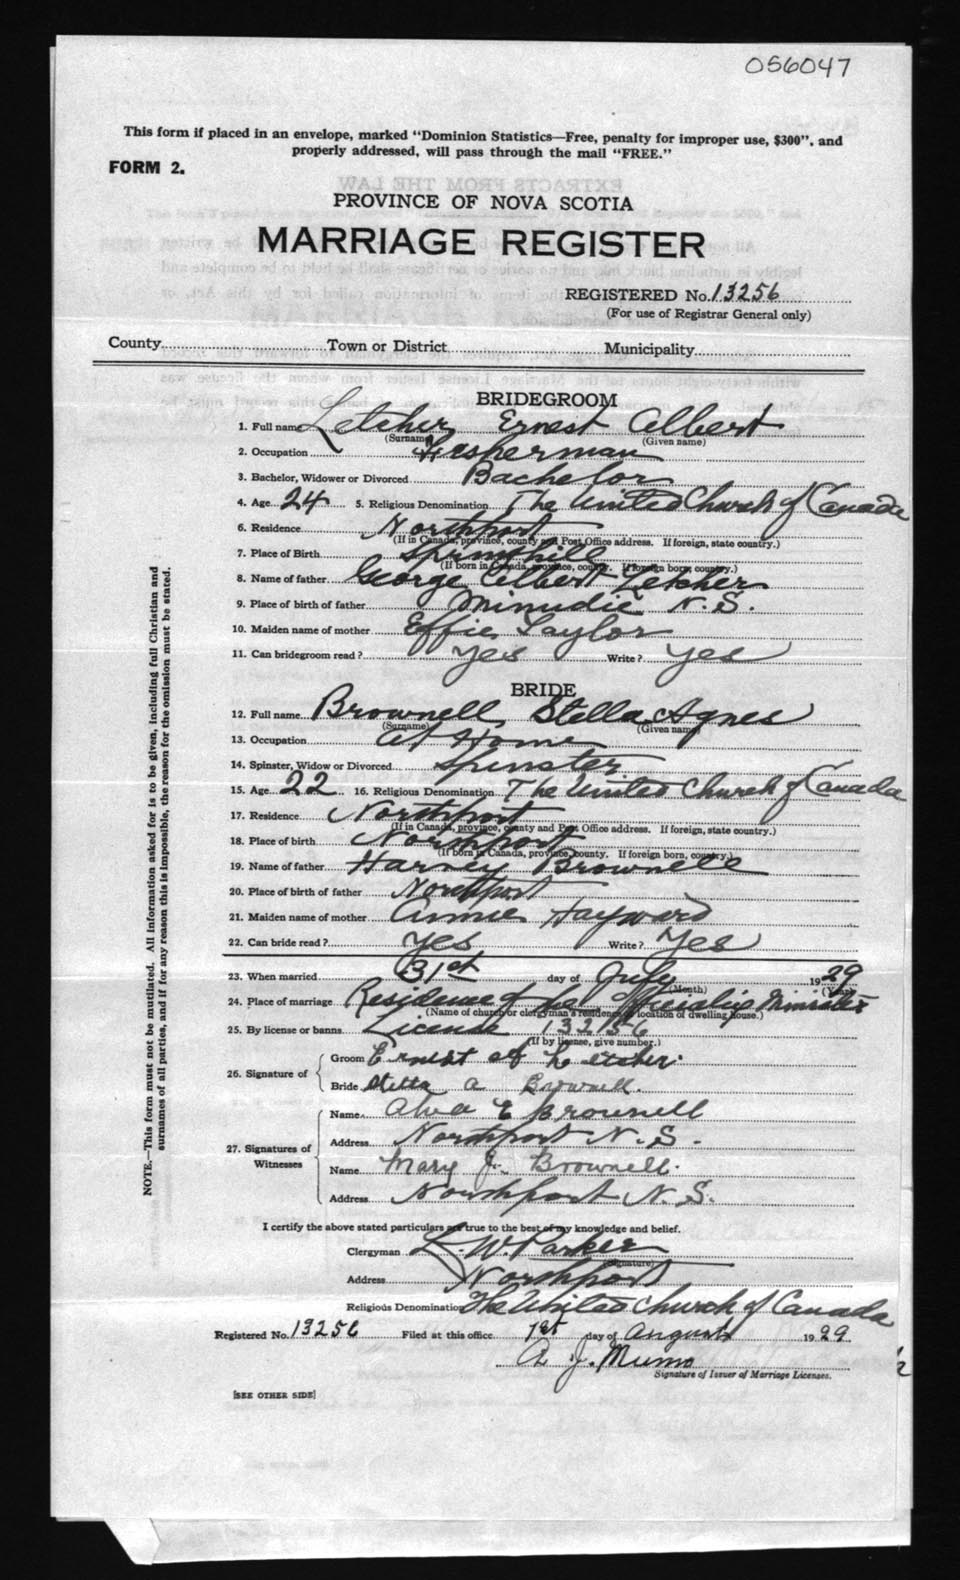 056047
This form if placed in an envelope, marked "Dominion Statistics—Free, penalty for improper use, $300", and
properly addressed, will pass through the mail "FREE."
FORM 2.
PROVINCE OF NOVA SCOTIA
MARRIAGE REGISTER
REGISTERED No. 13256
(For use of Registrar General only)
County Town or District Municipality
BRIDEGROOM
1. Full name Letcher Ernest Albert
(Surname) (Given name)
2. Occupation Fisherman
3. Bachelor, Widower or Divorced Bachelor
4. Age 24 5. Religious Denomination The United Church of Canada
6. Residence Northport
(If in Canada, province, county and Post Office address. If foreign, state country.)
7. Place of Birth Springhill
(If born in Canada, province, county. If foreign born, country.)
8. Name of father George Albert Letcher
9. Place of birth of father Minudie N.S.
10. Maiden name of mother Effie Taylor
11. Can bridegroom read? Yes Write? Yes
BRIDE
12. Full name Brownell, Stella Agnes
(Surname) (Given name)
13. Occupation At Home
14. Spinster, Widow or Divorced Spinster
15. Age 22 16. Religious Denomination The United Church of Canada
17. Residence Northport
(If in Canada, province, county and Post Office address. If foreign, state country.)
18. Place of birth Northport
(If born in Canada, province, county. If foreign born, country.)
19. Name of father Harvey Brownell
20. Place of birth of father Northport
21. Maiden name of mother Annie Hayward
22. Can bride read? Yes Write? Yes
23. When married 31st day of July 1929
(Month) (Year)
24. Place of marriage Residence of the Officiating Minister
(Name of church or clergyman's residence, or location of dwelling house.)
25. By license or banns License 13256
(If by license, give number.)
26. Signature of
Groom Ernest A Letcher.
Bride Stella A Brownell.
27. Signatures of Witnesses
Name Alva E Brownell
Address Northport N.S.
Name Mary J. Brownell.
Address Northport N.S.
I certify the above stated particulars are true to the best of my knowledge and belief.
Clergyman W. Parker
(Signature)
Address Northport
Religious Denomination The United Church of Canada
Registered No. 13256 Filed at this office 1st day of August 1929
A. J. Munro
Signature of Issuer of Marriage Licenses.
[SEE OTHER SIDE]
NOTE.—This form must not be mutilated. All information asked for is to be given, including full Christian and
surnames of all parties, and if for any reason this is impossible, the reason for the omission must be stated.